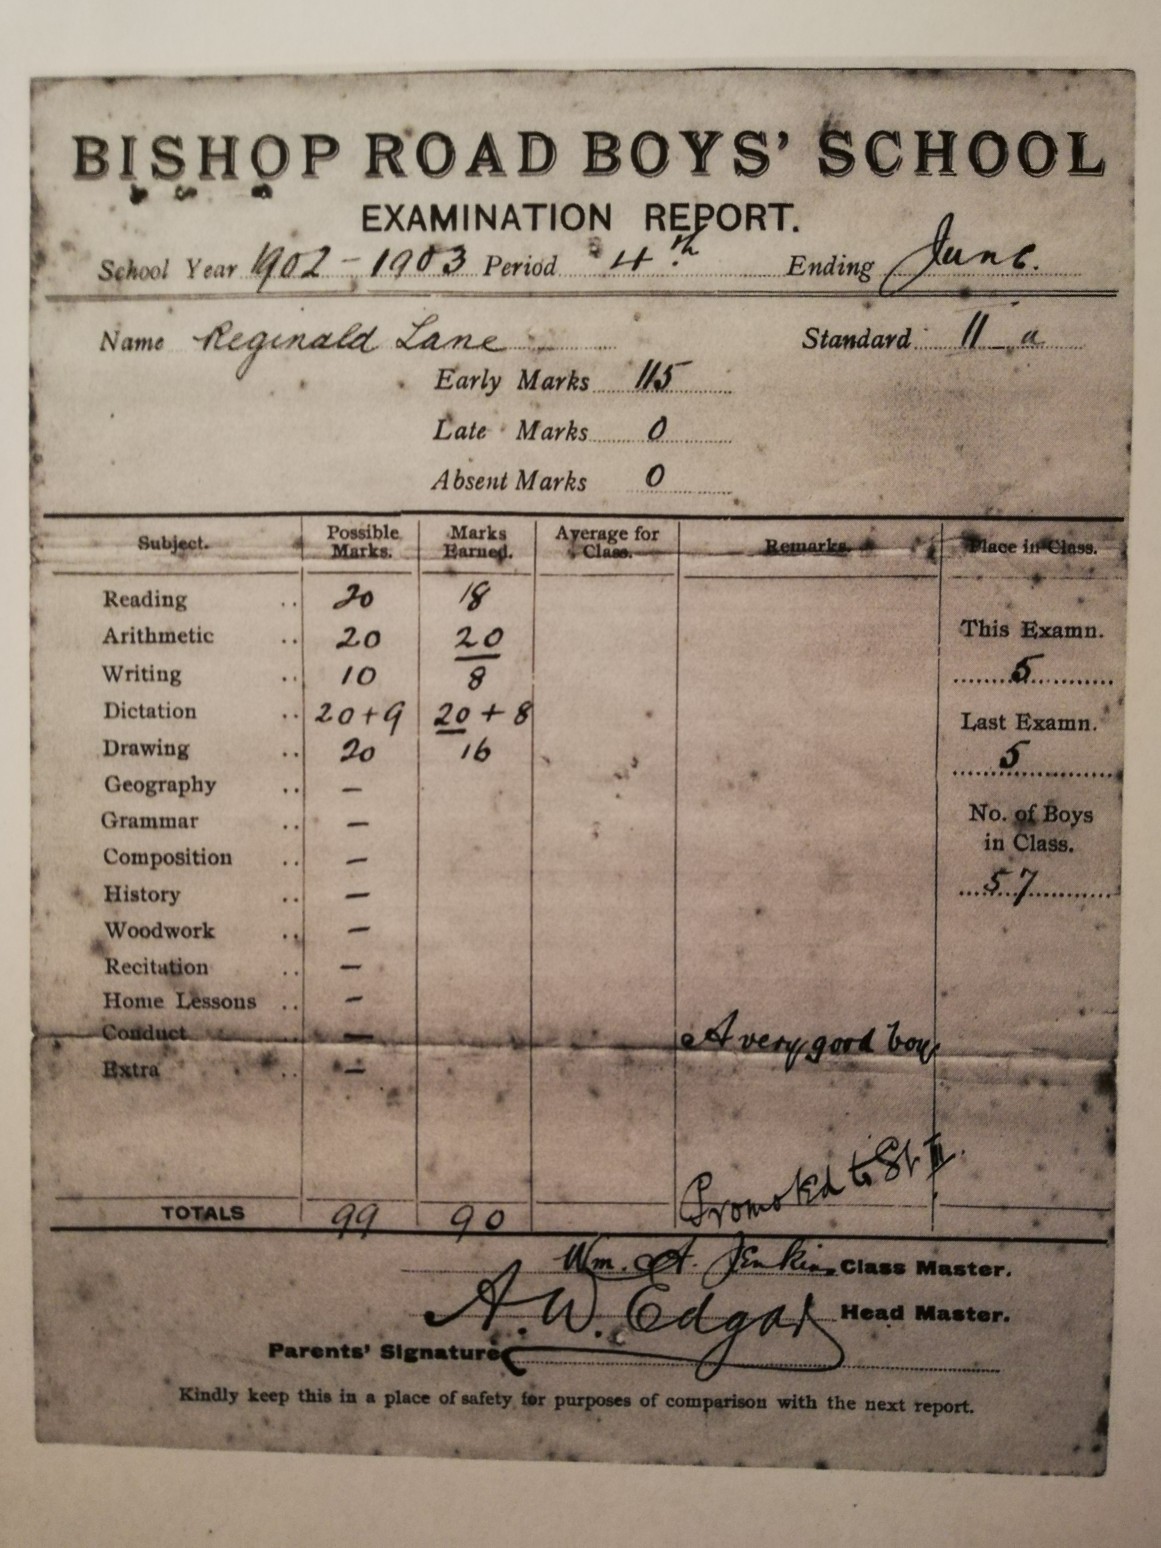 BISHOP ROAD BOYS' SCHOOL
EXAMINATION REPORT.
School Year 1902 - 1903 Period 4th Ending June.
Name Reginald Lane Standard II a
Early Marks 115
Late Marks 0
Absent Marks 0
Subject. Possible Marks. Marks Earned. Average for Class. Remarks. Place in Class.
Reading .. 20 18
This Examn.
Arithmetic .. 20 20
Writing .. 10 8
5
Dictation .. 20+9 20+8
Last Examn.
Drawing .. 20 16
5
Geography .. —
Grammar .. —
No. of Boys
in Class.
Composition .. —
History .. —
57
Woodwork .. —
Recitation .. —
Home Lessons .. —
Conduct — A very good boy
Extra .. —
Promoted to St II.
TOTALS 99 90
Wm. A. Jenkins Class Master.
A. W. Edgar Head Master.
Parents' Signature
Kindly keep this in a place of safety for purposes of comparison with the next report.